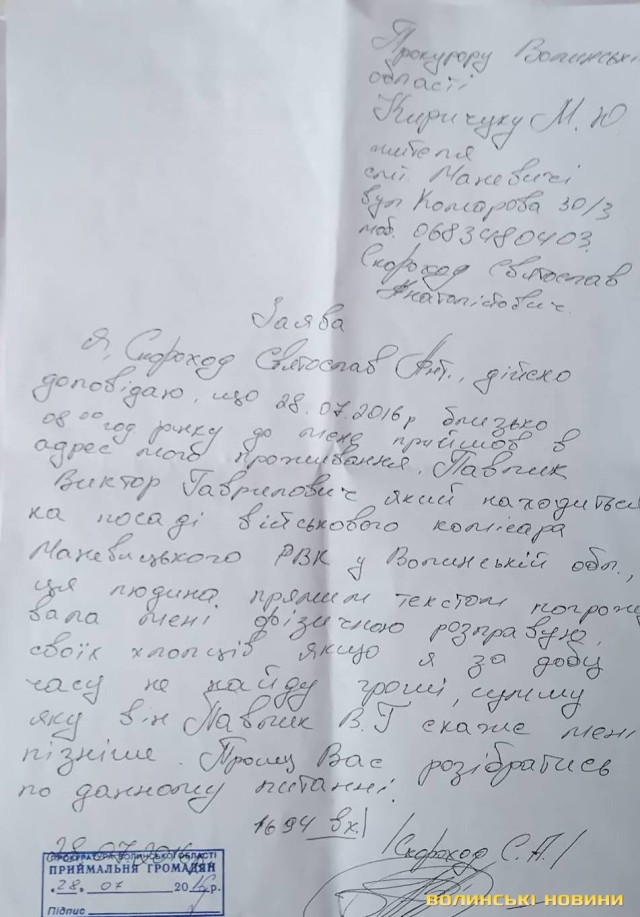 Прокурору Волинські
області
Киричуку М. Ю
жителя
смт. Маневичі
вул Комарова 30/3
моб. 0683480403
Скороход Святослав
Анатолійович.
Заява
Я, Скороход Святослав Ант., дійсно
доповідаю, що 28.07.2016р близько
08 00 год ранку до мене прийшов в
адрес мого проживання. Павлик
Виктор Гаврилович який находиться
на посаді військового комісара
Маневицького РВК у Волинській обл.,
ця людина прямим текстом погрожу
вала мені фізичною розправую
своїх хлопців якщо я за добу
часу не найду гроші, сумму
яку він Павлик В.Г скаже мені
пізніше. Прошу Вас розібратись
по данному питанні.
1694 вх/
28.07.2016р /Скороход С.А/
ПРОКУРАТУРА ВОЛИНСЬКОЇ ОБЛАСТІ
ПРИЙМАЛЬНЯ ГРОМАДЯН
"28" 07 2016 р.
Підпис
ВОЛИНСЬКІ НОВИНИ